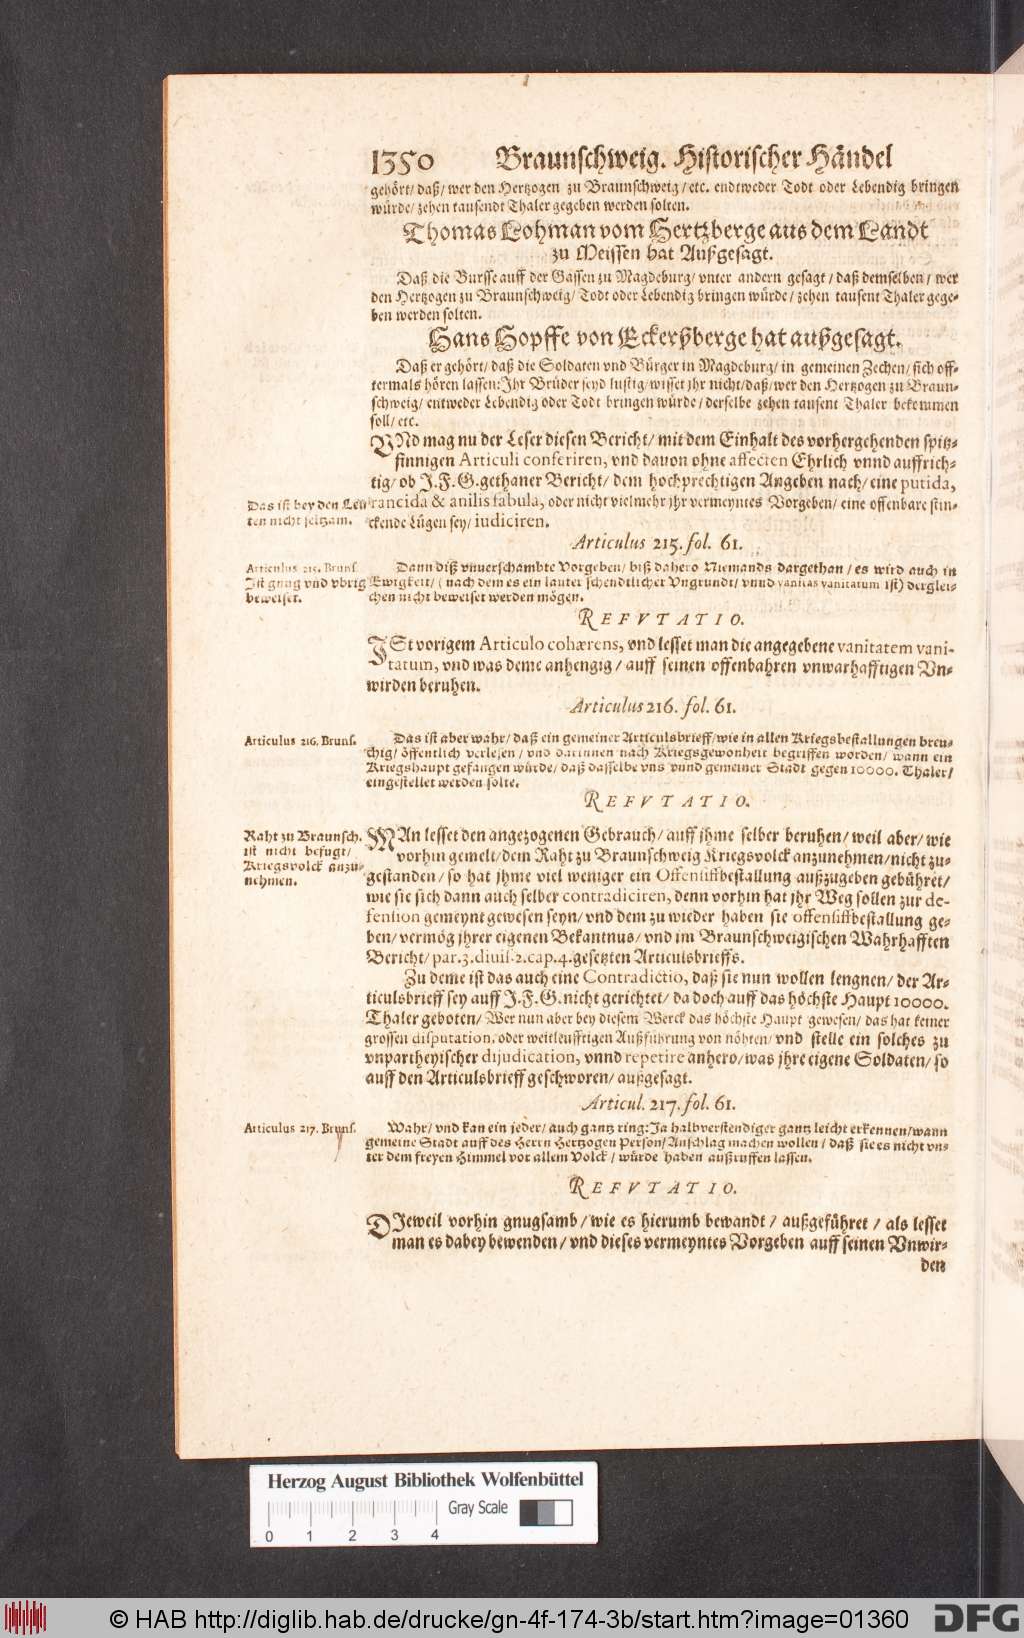 1350 Braunschweig. Historischer Händel
gehört/ daß/ wer den Hertzogen zu Braunschweig/ etc. endtweder Todt oder Lebendig bringen
würde/ zehen tausendt Thaler gegeben werden solten.
Thomas Lohman vom Hertzberge aus dem Landt
zu Meissen hat Außgesagt.
Daß die Bursse auff der Gassen zu Magdeburg/ vnter andern gesagt/ daß demselben/ wer
den Hertzogen zu Braunschweig/ Todt oder Lebendig bringen würde/ zehen tausent Thaler gege-
ben werden solten.
Hans Hopffe von Eckerßberge hat außgesagt.
Daß er gehört/ daß die Soldaten vnd Bürger in Magdeburg/ in gemeinen Zechen/ sich off-
termals hören lassen: Jhr Brüder seyd lustig/ wisset jhr nicht/ daß/ wer den Hertzogen zu Braun-
schweig/ entweder Lebendig oder Todt bringen würde/ derselbe zehen tausent Thaler bekommen
soll/ etc.
VNd mag nu der Leser diesen Bericht/ mit dem Einhalt des vorhergehenden spitz-
finnigen Articuli conferiren, vnd dauon ohne affecten Ehrlich vnnd auffrich-
tig/ ob J.F.G. gethaner Bericht/ dem hochprechtigen Angeben nach/ eine putida,
Das ist bey den Leu-
ten nicht seltzam.
rancida & anilis fabula, oder nicht vielmehr jhr vermeyntes Vorgeben/ eine offenbare stin-
ckende Lügen sey/ iudiciren.
Articulus 215. fol. 61.
Articulus 215. Bruns.
Ist gnug vnd vbrig
beweiset.
Dann diß vnuerschambte Vorgeben/ biß dahero Niemands dargethan/ es wird auch in
Ewigkeit/ (nach dem es ein lauter schendtlicher Vngrundt/ vnnd vanitas vanitatum ist) derglei-
chen nicht beweiset werden mögen.
REFVTATIO.
JSt vorigem Articulo cohærens, vnd lesset man die angegebene vanitatem vani-
tatum, vnd was deme anhengig/ auff seinen offenbahren vnwarhafftigen Vn-
wirden beruhen.
Articulus 216. fol. 61.
Articulus 216. Bruns.
Das ist aber wahr/ daß ein gemeiner Articulsbrieff/ wie in allen Kriegsbestallungen breu-
chig/ öffentlich verlesen/ vnd darinnen nach Kriegsgewonheit begriffen worden/ wann ein
Kriegshaupt gefangen würde/ daß dasselbe vns vnnd gemeiner Stadt gegen 10000. Thaler/
eingestellet werden solte.
REFVTATIO.
Raht zu Braunsch.
ist nicht befugt/
Kriegsvolck anzu-
nehmen.
MAn lesset den angezogenen Gebrauch/ auff jhme selber beruhen/ weil aber/ wie
vorhin gemelt/ dem Raht zu Braunschweig Kriegsvolck anzunehmen/ nicht zu-
gestanden/ so hat jhme viel weniger ein Offensiffbestallung außzugeben gebühret/
wie sie sich dann auch selber contradiciren, denn vorhin hat jhr Weg sollen zur de-
fension gemeynt gewesen seyn/ vnd dem zu wieder haben sie offensiffbestallung ge-
ben/ vermög jhrer eigenen Bekantnus/ vnd im Braunschweigischen Wahrhafften
Bericht/ par. 3. diuis. 2. cap. 4. gesetzten Articulsbrieffs.
Zu deme ist das auch eine Contradictio, daß sie nun wollen lengnen/ der Ar-
ticulsbrieff sey auff J.F.G. nicht gerichtet/ da doch auff das höchste Haupt 10000.
Thaler geboten/ Wer nun aber bey diesem Werck das höchste Haupt gewesen/ das hat keiner
grossen disputation, oder weitleufftigen Außführung von nöhten/ vnd stelle ein solches zu
vnpartheyischer dijudication, vnnd repetire anhero/ was jhre eigene Soldaten/ so
auff den Articulsbrieff geschworen/ außgesagt.
Articul. 217. fol. 61.
Articulus 217. Bruns.
Wahr/ vnd kan ein jeder/ auch gantz ring: Ja halbverstendiger gantz leicht erkennen/ wann
gemeine Stadt auff des Herrn Hertzogen Person/ Anschlag machen wollen/ daß sie es nicht vn-
ter dem freyen Himmel vor allem Volck/ würde haben außruffen lassen.
REFVTATIO.
DJeweil vorhin gnugsamb/ wie es hierumb bewandt/ außgeführet/ als lesset
man es dabey bewenden/ vnd dieses vermeyntes Vorgeben auff seinen Vnwir-
den
Herzog August Bibliothek Wolfenbüttel
Gray Scale
0 1 2 3 4
© HAB http://diglib.hab.de/drucke/gn-4f-174-3b/start.htm?image=01360
DFG